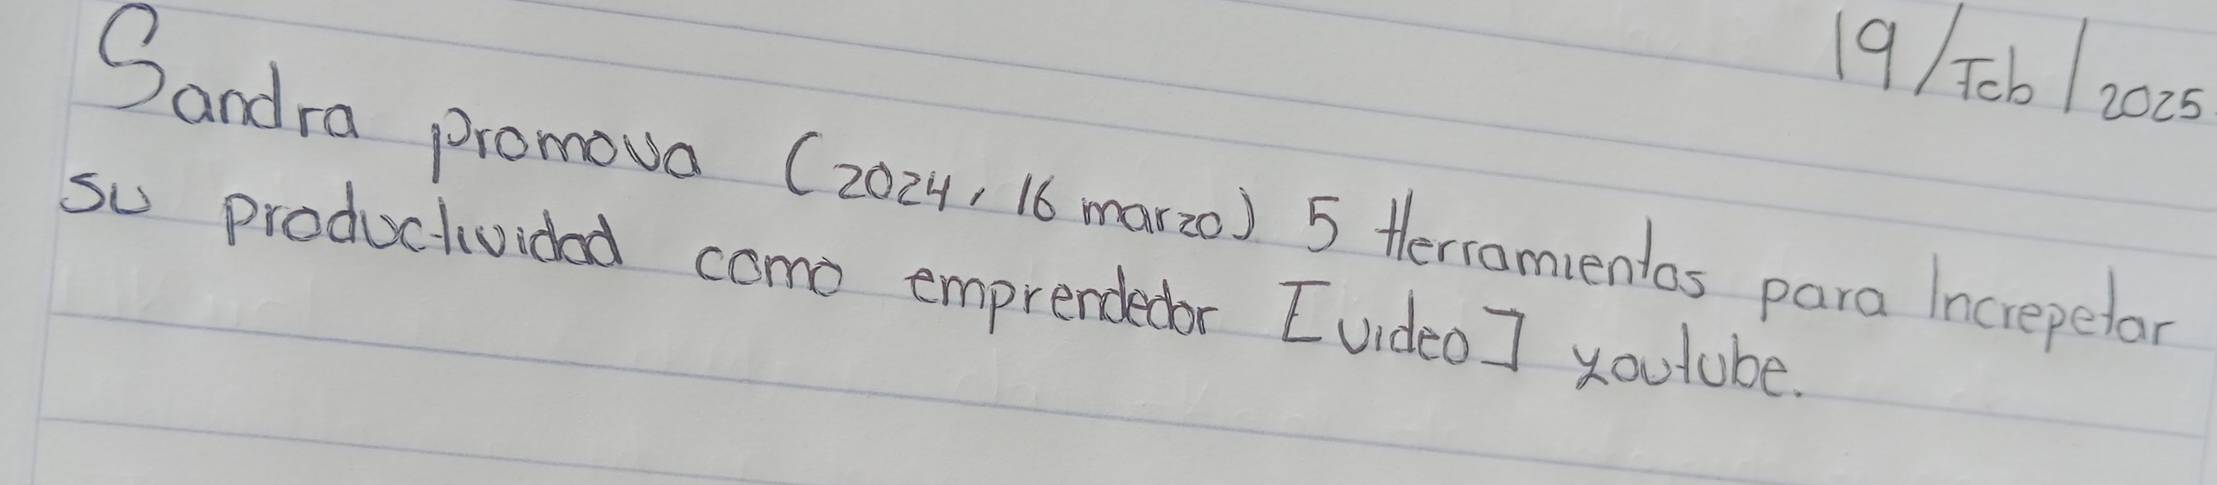 19/Feb/2025
Sandra promova (2024, 16 marzo) 5 Herramientas para Increpetar
su productividad como emprendedor [video] youtube.